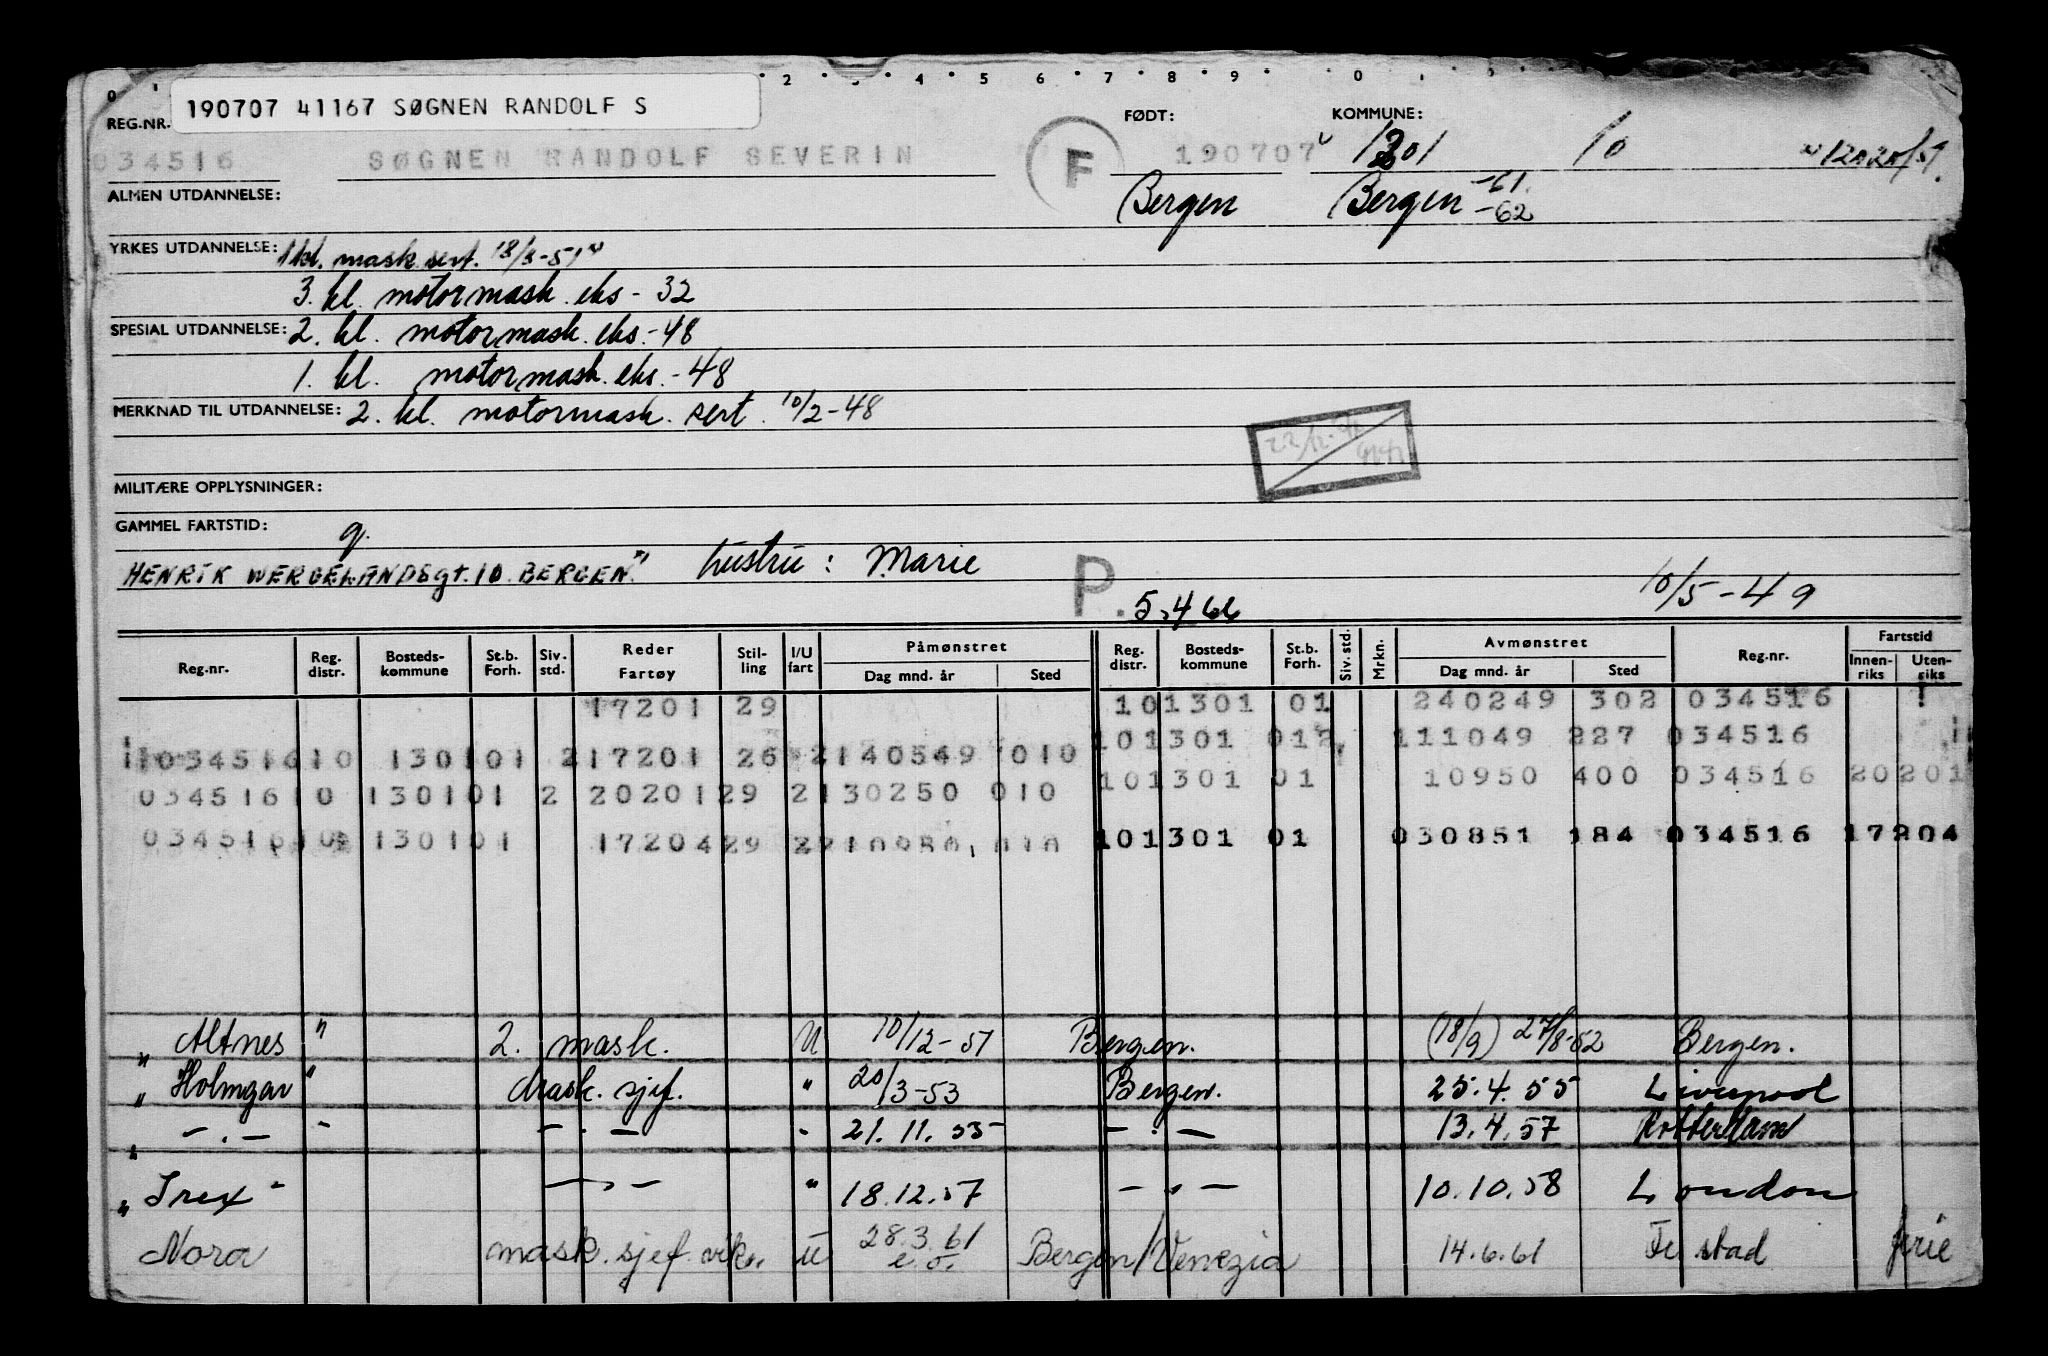 0 2 3 4 5 6 7 8 9 0
190707 41167 SØGNEN RANDOLF S
REG.NR. FØDT: KOMMUNE:
034516 SØGNEN RANDOLF SEVERIN F 190707 1301 10
Bergen Bergen -61.
-62
ALMEN UTDANNELSE:
YRKES UTDANNELSE: 1 kl. mask. sert. 18/8-51
3. kl. motormask. eks - 32
SPESIAL UTDANNELSE: 2. kl. motormask. eks. - 48
1. kl. motormask. eks. - 48
MERKNAD TIL UTDANNELSE: 2. kl. motormask. sert. 10/2-48
MILITÆRE OPPLYSNINGER:
GAMMEL FARTSTID: g.
HENRIK WERGELANDSgt. 10 BERGEN. hustru: Marie P. 5.4 66 10/5-49
Reg.nr. Reg. distr. Bosteds-kommune St.b. Forh. Siv. std. Reder Fartøy Stil-ling I/U fart Påmønstret Dag mnd. år Sted Reg. distr. Bosteds-kommune St.b. Forh. Siv. std. Mrkn. Avmønstret Dag mnd. år Sted Reg.nr. Fartstid Innen-riks Uten-riks
17201 29 101301 01 240249 302 034516
034516 10 1301 01 2 17201 26 2 140549 010 101301 012 111049 227 034516
034516 10 1301 01 2 20201 29 2 130250 010 101301 01 10950 400 034516 20201
034516 10 1301 01 17204 29 2 210950 010 101301 01 030851 184 034516 17204
" Altnes " 2. mask. U 10/12-51 Bergen. (18/9) 27/8-52 Bergen.
" Holmgar " Mask. sjef. " 20/3-53 Bergen. 25.4.55 Liverpool
" -.- - -.- " 21.11.55 -.- 13.4.57 Rotterdam
" Irex " -.- " 18.12.57 -.- 10.10.58 London
Nora mask. sjef. vik. U 28.3.61 Bergen/Venezia 14.6.61 stad
e.o.